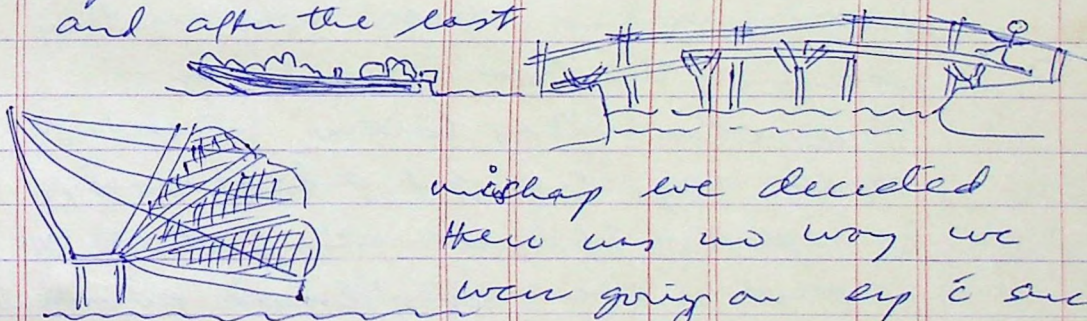 and after the last
mishap we decided
there was no way we
were going on exp c̄ such